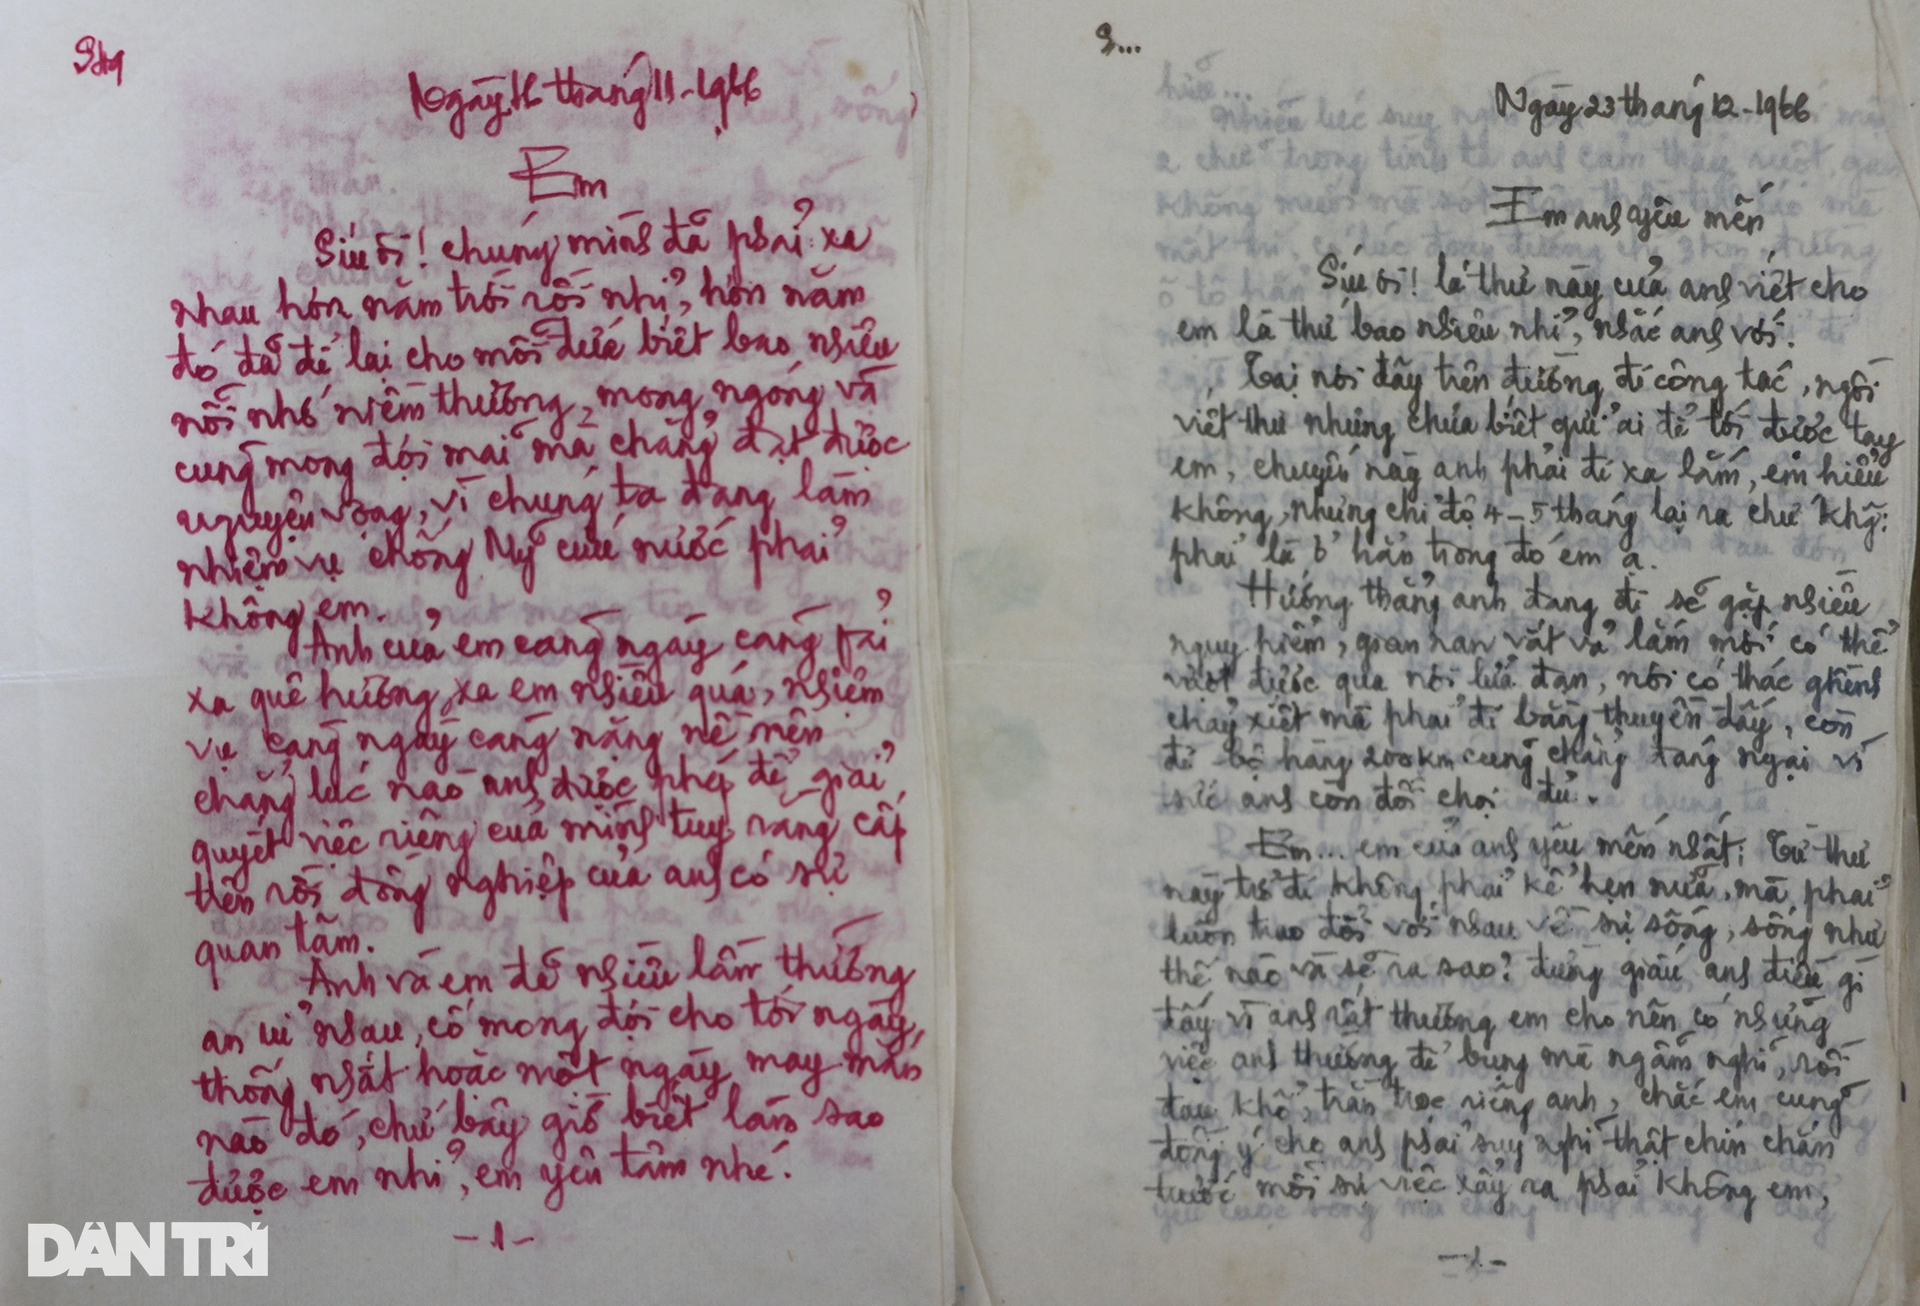 Ngày 16 tháng 11-1966
Em
Síu ơi! chúng mình đã phải xa
nhau hơn năm trời rồi nhỉ, hơn năm
đó đã để lại cho mỗi đứa biết bao nhiêu
nỗi nhớ niềm thương, mong ngóng và
cũng mong đợi mãi mà chẳng đạt được
nguyện vọng, vì chúng ta đang làm
nhiệm vụ chống Mỹ cứu nước phải
không em.
Anh của em càng ngày càng fải
xa quê hương, xa em nhiều quá, nhiệm
vụ càng ngày càng nặng nề nên
chẳng lúc nào anh được phép để giải
quyết việc riêng của mình tuy rằng cấp
trên rồi đồng nghiệp của anh có sự
quan tâm.
Anh và em đã nhiều lần thường
an ủi nhau, cố mong đợi cho tới ngày
thống nhất hoặc một ngày may mắn
nào đó, chứ bây giờ biết làm sao
được em nhỉ, em yên tâm nhé.
-1-
S...
Ngày 23 tháng 12-1966
Em anh yêu mến
Síu ơi! lá thư này của anh viết cho
em là thư bao nhiêu nhỉ, nhắc anh với.
Tại nơi đây trên đường đi công tác, ngồi
viết thư nhưng chưa biết gửi ai để tới được tay
em, chuyến này anh phải đi xa lắm, em hiểu
không, nhưng chỉ độ 4-5 tháng lại ra chứ khg:
phải là ở hẳn trong đó em ạ.
Hướng thẳng anh đang đi sẽ gặp nhiều
nguy hiểm, gian nan vất vả lắm mới có thể
vượt được qua nơi lửa đạn, nơi có thác ghềnh
chảy xiết mà phải đi bằng thuyền đấy, còn
đi bộ hàng 200km cũng chẳng đáng ngại vì
sức anh còn đối chọi đủ.
Em... em của anh yêu mến nhất: Từ thư
này trở đi không phải kể hẹn nữa, mà phải
luôn trao đổi với nhau về sự sống, sống như
thế nào và sẽ ra sao? đừng giấu anh điều gì
đấy vì anh rất thương em cho nên có những
việc anh thường để bụng mà ngẫm nghĩ, rồi
đau khổ, trằn trọc riêng anh, chắc em cũng
đồng ý cho anh phải suy nghĩ thật chín chắn
trước mỗi sự việc xẩy ra phải không em,
-1-
DÂN TRÍ